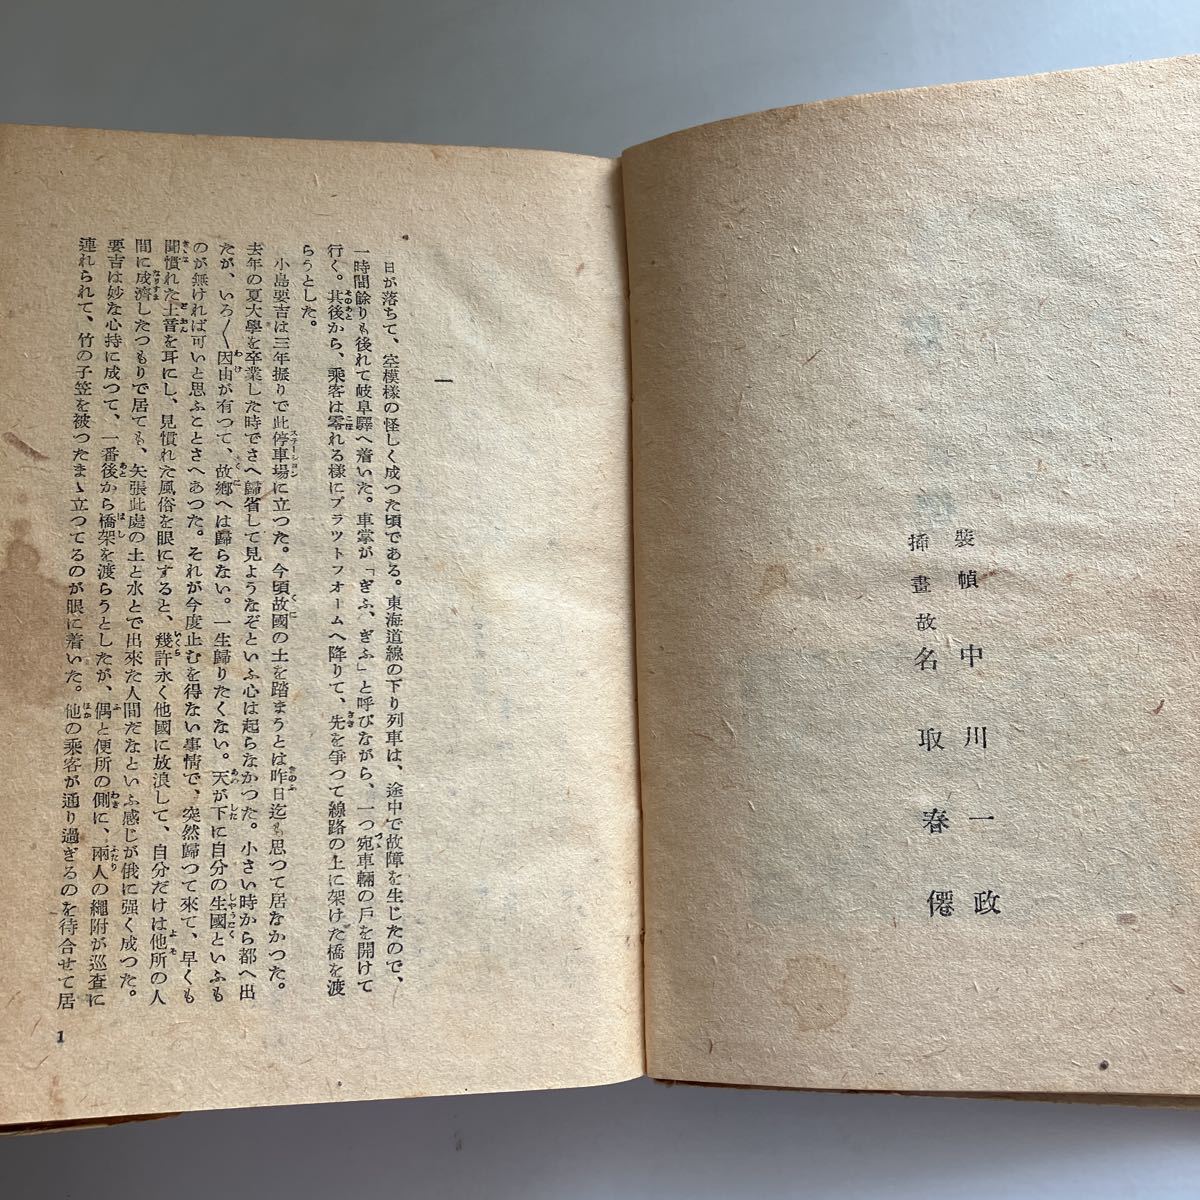 裝幀 中川一政
挿畫 故名取春僊
一
日が落ちて、空模樣の怪しく成つた頃である。東海道線の下り列車は、途中で故障を生じたので、
一時間餘りも後れて岐阜驛へ着いた。車掌が「ぎふ、ぎふ」と呼びながら、一つ宛車輛の戸を開けて
行く。其後から、乘客は零れる樣にプラツトフオームへ降りて、先を爭つて線路の上に架けた橋を渡
らうとした。
小島要吉は三年振りで此停車場に立つた。今頃故國の土を踏まうとは昨日迄も思つて居なかつた。
去年の夏大學を卒業した時でさへ歸省して見ようなぞといふ心は起らなかつた。小さい時から都へ出
たが、いろ〳〵因由が有つて、故鄕へは歸らない。一生歸りたくない。天が下に自分の生國といふも
のが無ければ可いと思ふことさへあつた。それが今度止むを得ない事情で、突然歸つて來て、早くも
聞慣れた土音を耳にし、見慣れた風俗を眼にすると、幾許永く他國に放浪して、自分だけは他所の人
間に成濟したつもりで居ても、矢張此處の土と水とで出來た人間だなといふ感じが俄に强く成つた。
要吉は妙な心持に成つて、一番後から橋架を渡らうとしたが、偶と便所の側に、兩人の繩附が巡査に
連れられて、竹の子笠を被つたまゝ立つてるのが眼に着いた。他の乘客が通り過ぎるのを待合せて居
1